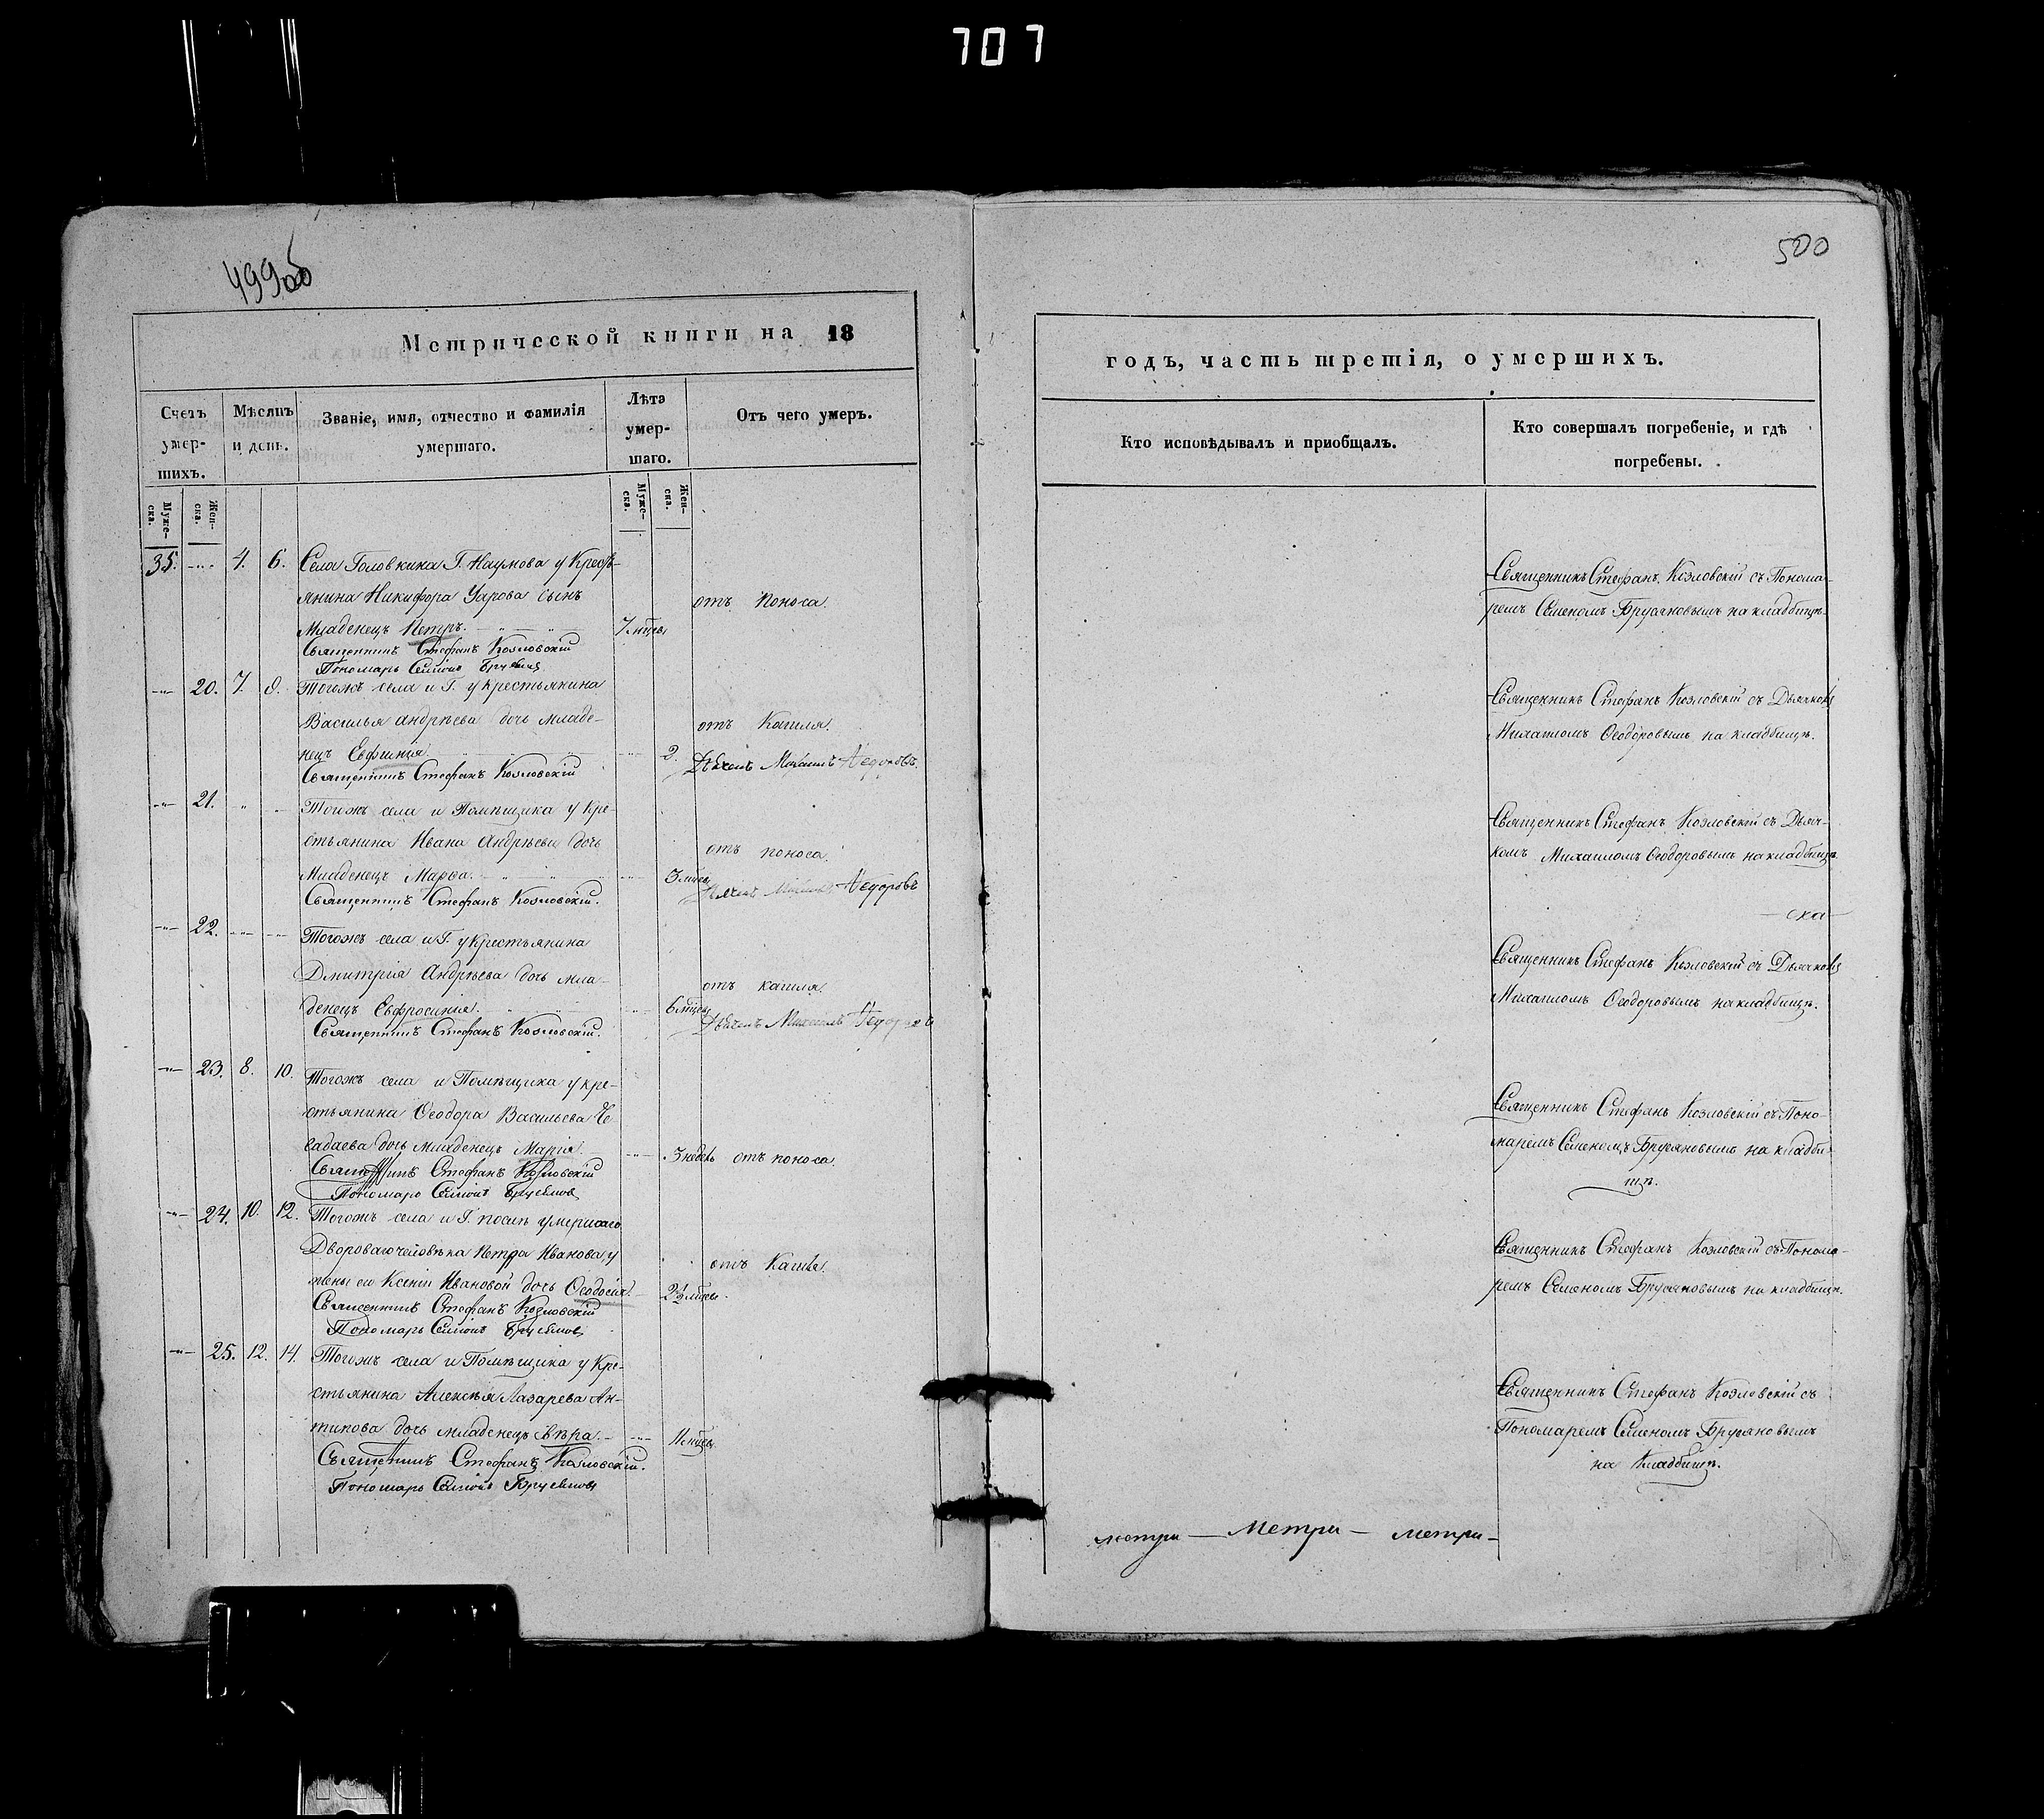 707
499об
Метрической книги на 18
Счетъ умер-шихъ.
Мѣсяцъ и день.
Званіе, имя, отчество и фамилія умершаго.
Лѣта умер-шаго.
Отъ чего умеръ.
Муже-ска.
Жен-ска.
Муже-ска.
Жен-ска.
35. 4. 6. Села Головкина Г. Наумова у Кресть-
янина Никифора Уварова сынъ
отъ поноса.
Младенецъ Петръ. 7 мѣсец
Священникъ Стефанъ Козловскій
Пономарь Симеонъ
20. 7. 9. Тогожъ села и Г. у крестьянина
Василья Андрѣева дочь младе-
отъ кашля.
нецъ Евфимія 2.
Священникъ Стефанъ Козловскій
Дьячекъ Михаилъ Федоровъ.
21. Тогожъ села и Помѣщика у Кре-
стьянина Ивана Андрѣева дочь
отъ поноса.
Младенецъ Марѳа. 3 мѣсец
Священникъ Стефанъ Козловскій.
Дьячекъ Михаилъ Федоровъ
22. Тогожъ села и Г. у Крестьянина
Дмитрія Андрѣева дочь мла-
отъ кашля.
денецъ Евфросинія. 6 мѣсец
Священникъ Стефанъ Козловскій.
Дьячекъ Михаилъ Федоровъ
23. 8. 10. Тогожъ села и Помѣщика у кре-
стьянина Ѳеодора Васильева Че-
садаева дочь младенецъ Марія. 3 недѣль отъ поноса.
Священникъ Стефанъ Козловскій
Пономарь Симеонъ
24. 10. 12. Тогожъ села и Г. послѣ умершаго
Двороваго человѣка Петра Иванова, у
отъ Кашля.
жены его Ксеніи Ивановой дочь Ѳеодосія.
Священникъ Стефанъ Козловскій
Пономарь Симеонъ
25. 12. 14. Тогожъ села и Помѣщика у Кре-
стьянина Алексѣя Лазарева Ан-
типова дочь младенецъ Вѣра.
Священникъ Стефанъ Козловскій.
Пономарь Симеонъ
500
годъ, часть третія, о умершихъ.
Кто исповѣдывалъ и приобщалъ.
Кто совершалъ погребеніе, и гдѣ погребены.
Священникъ Стефанъ Козловскій съ Понома-
ремъ Семеномъ Брусяновымъ на кладбищѣ.
Священникъ Стефанъ Козловскій съ Дьячкомъ
Михаиломъ Ѳеодоровымъ на кладбищѣ.
Священникъ Стефанъ Козловскій съ Дьяч-
комъ Михаиломъ Ѳеодоровымъ на кладбищѣ
- ска -
Священникъ Стефанъ Козловскій съ Дьячкомъ
Михаиломъ Ѳеодоровымъ на кладбищѣ.
Священникъ Стефанъ Козловскій съ Поно-
маремъ Семеномъ Брусяновымъ на кладби-
щѣ.
Священникъ Стефанъ Козловскій съ Понома-
ремъ Семеномъ Брусяновымъ на кладбищѣ.
Священникъ Стефанъ Козловскій съ
Пономаремъ Семеномъ Брусяновымъ
на Кладбищѣ.
метри — Метри — метри —